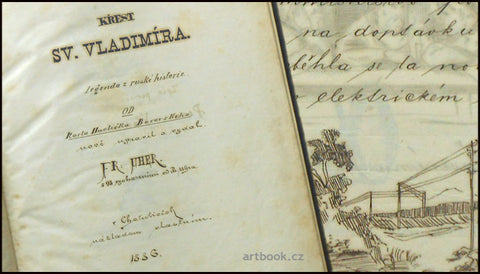 KŘEST
SV. VLADIMÍRA.
Legenda z ruské historie.
OD
Karla Havlíčka Borovského
nově upravil a vydal
FR. UHER.
s vyobrazeními od
v
nákladem vlastním.
1886.
na doptávku
běhla se ta no
v elektrickém
artbook.cz